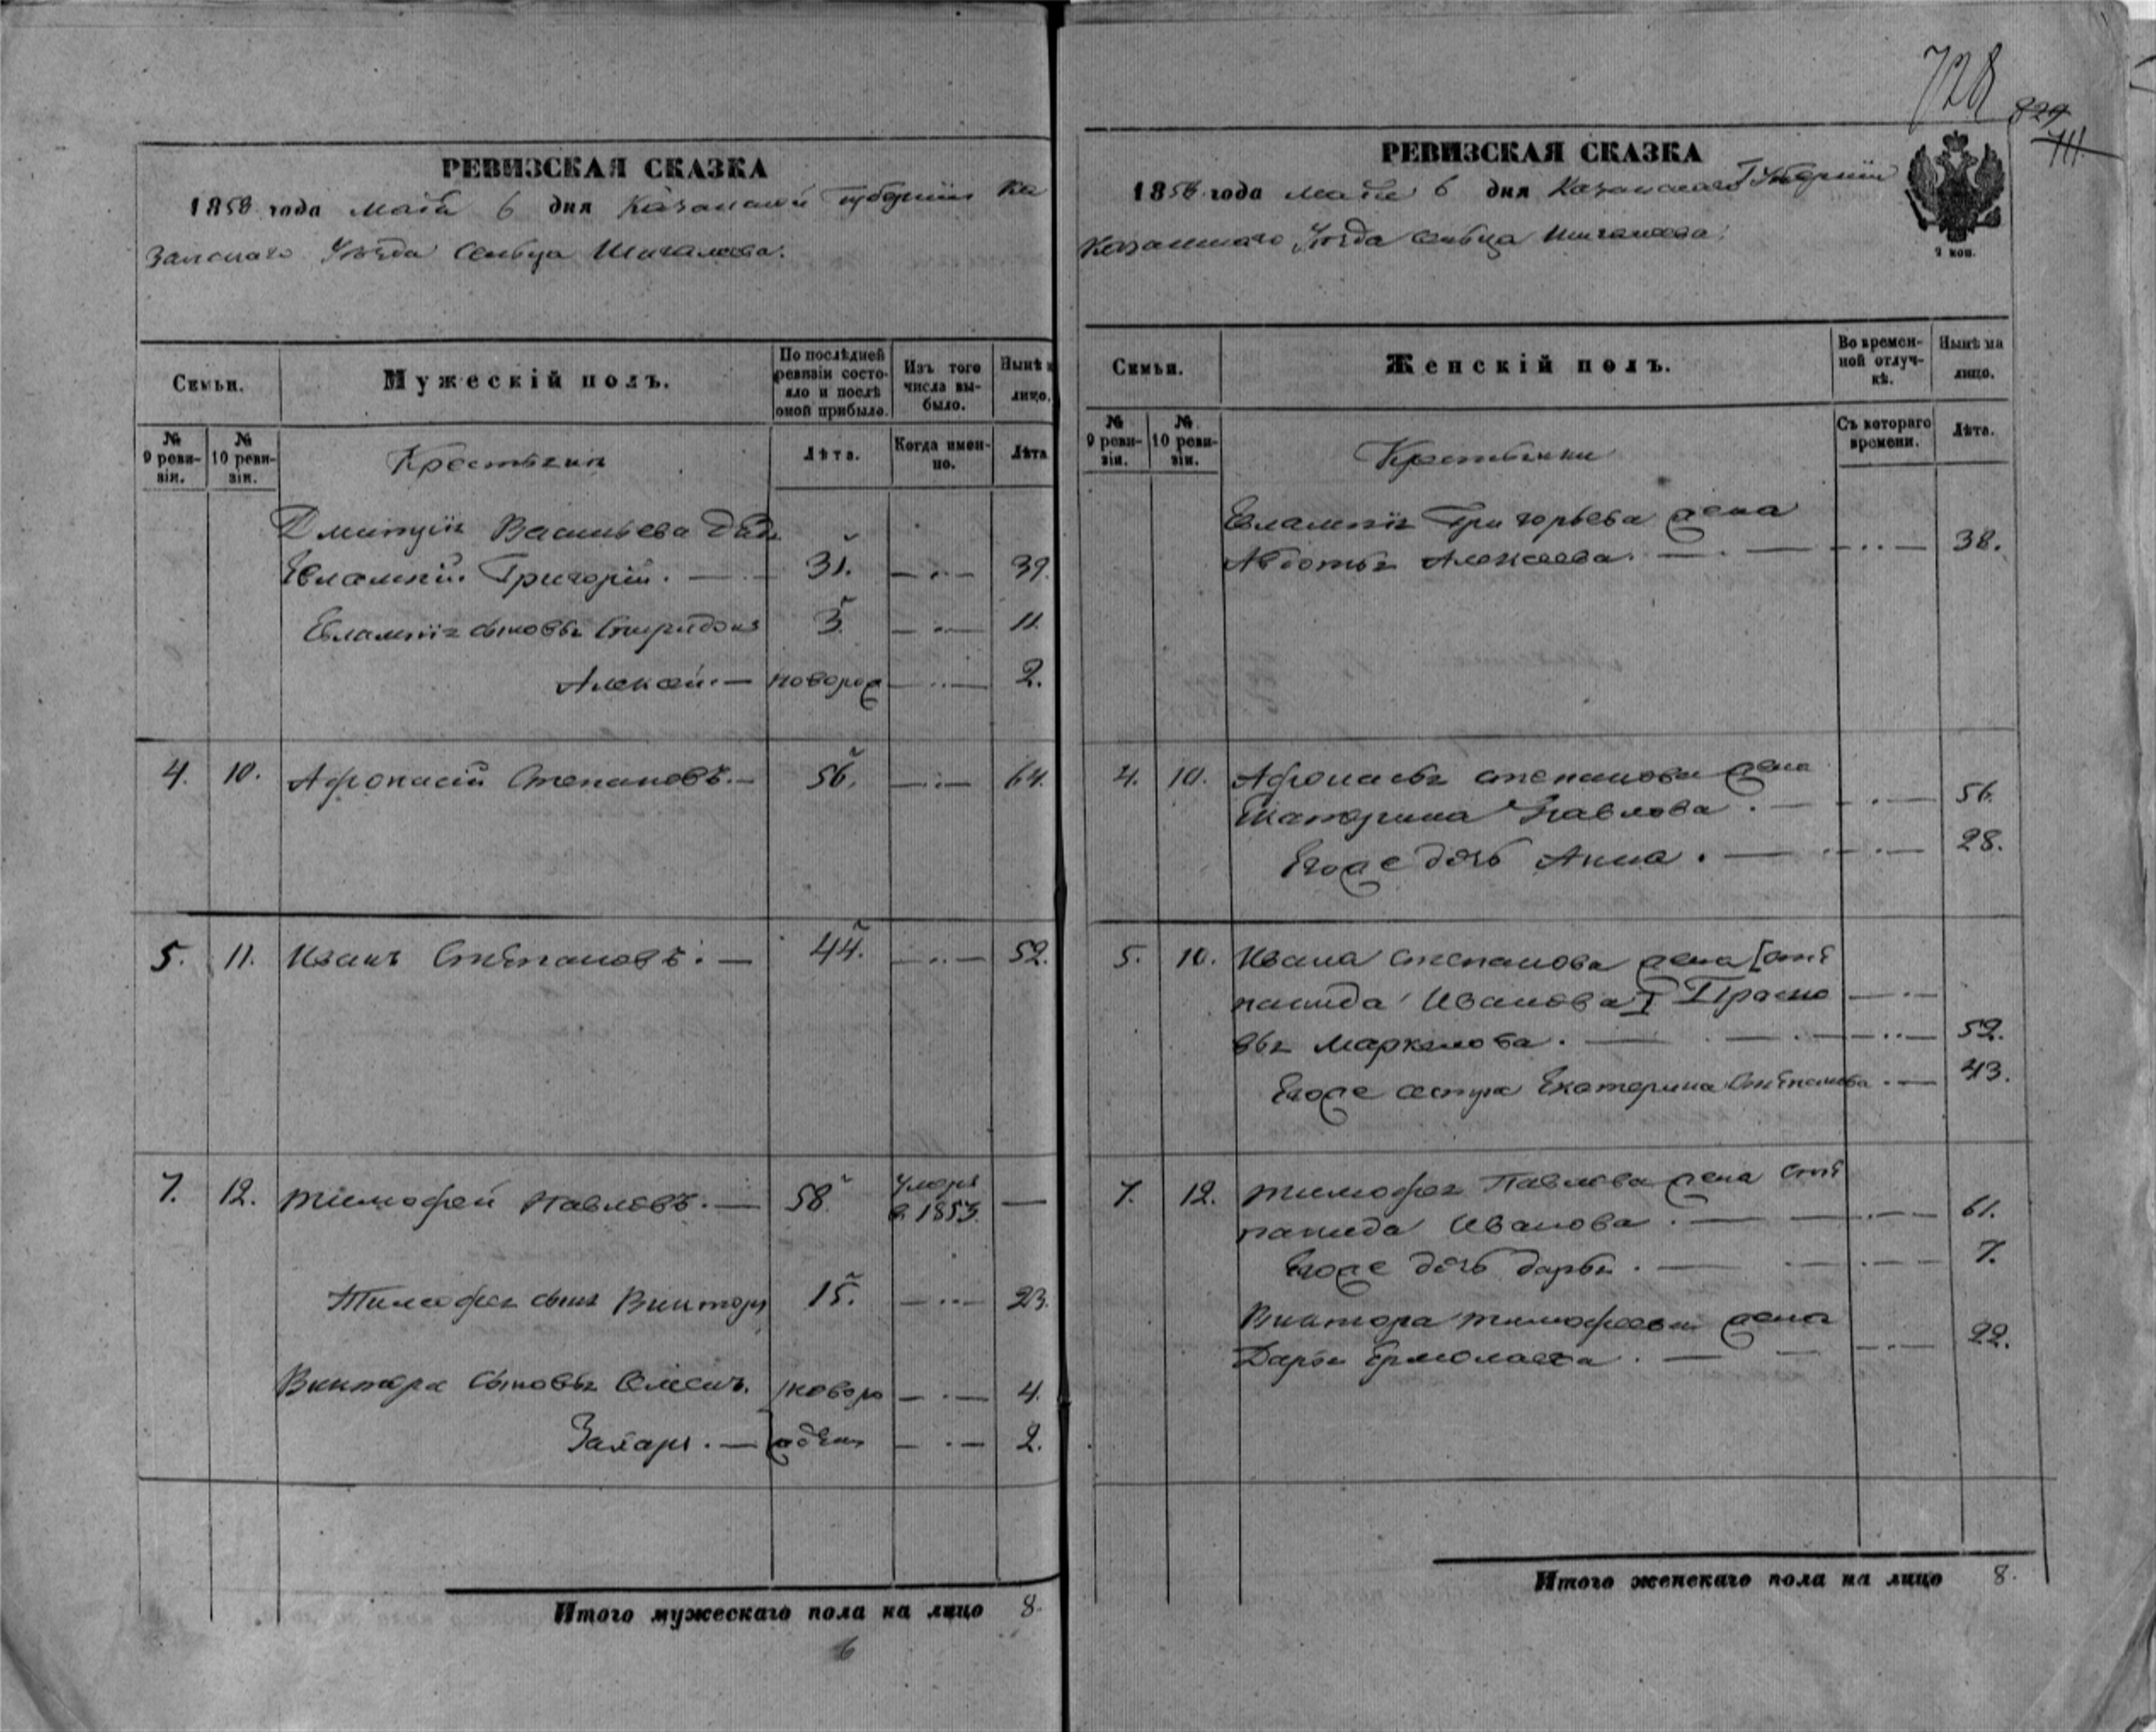 728
829
711
РЕВИЗСКАЯ СКАЗКА
1858 года маія 6 дня Казанской губерніи Ка
занскаго Уѣзда сельца Шигалеева.
Семьи.
Мужескій полъ.
По послѣдней ревизіи состояло и послѣ оной прибыло.
Изъ того числа выбыло.
Нынѣ на лицо.
№ 9 ревизіи.
№ 10 ревизіи.
Крестьяне
Лѣта.
Когда именно.
Лѣта
Дмитрія Васильева
Евлампій Григорій. — 31. — 39.
Евлампія сыновья Спиридонъ 3. — 11.
Алексѣй. — новорож — 2.
4. 10. Афонасій Степановъ. — 56. — 64.
5. 11. Иванъ Степановъ. — 44. — 52.
7. 12. Тимофей Павловъ. — 58. умеръ —
в. 1853.
Тимофея сынъ Викторъ 15. — 23.
Виктора сыновья новоро — 4.
Захаръ. — жденъ — 2.
Итого мужескаго пола на лицо 8.
6
РЕВИЗСКАЯ СКАЗКА
1858 года маія 6 дня Казанской Губерніи
Казанскаго Уѣзда сельца Шигалеева.
2 коп.
Семьи.
Женскій полъ.
Во временной отлучкѣ.
Нынѣ на лицо.
№ 9 ревизіи.
№ 10 ревизіи.
Крестьянки
Съ котораго времени.
Лѣта.
Евлампія Григорьева жена
Авдотья Алексеева. — 38.
4. 10. Афонасья степанова жена
Екатерина Павлова. — 56.
Егоже дочь Анна. — 28.
5. 10. Ивана степанова жена [сте
панида Иванова] Праско
вья маркелова. — 52.
Егоже сестра Екатерина Степанова. — 43.
7. 12. Тимофея Павлова жена сте
панида Иванова. — 61.
Егоже дочь дарья. — 7.
Виктора тимофеева жена
Дарья Ермолаева. — 22.
Итого женскаго пола на лицо 8.